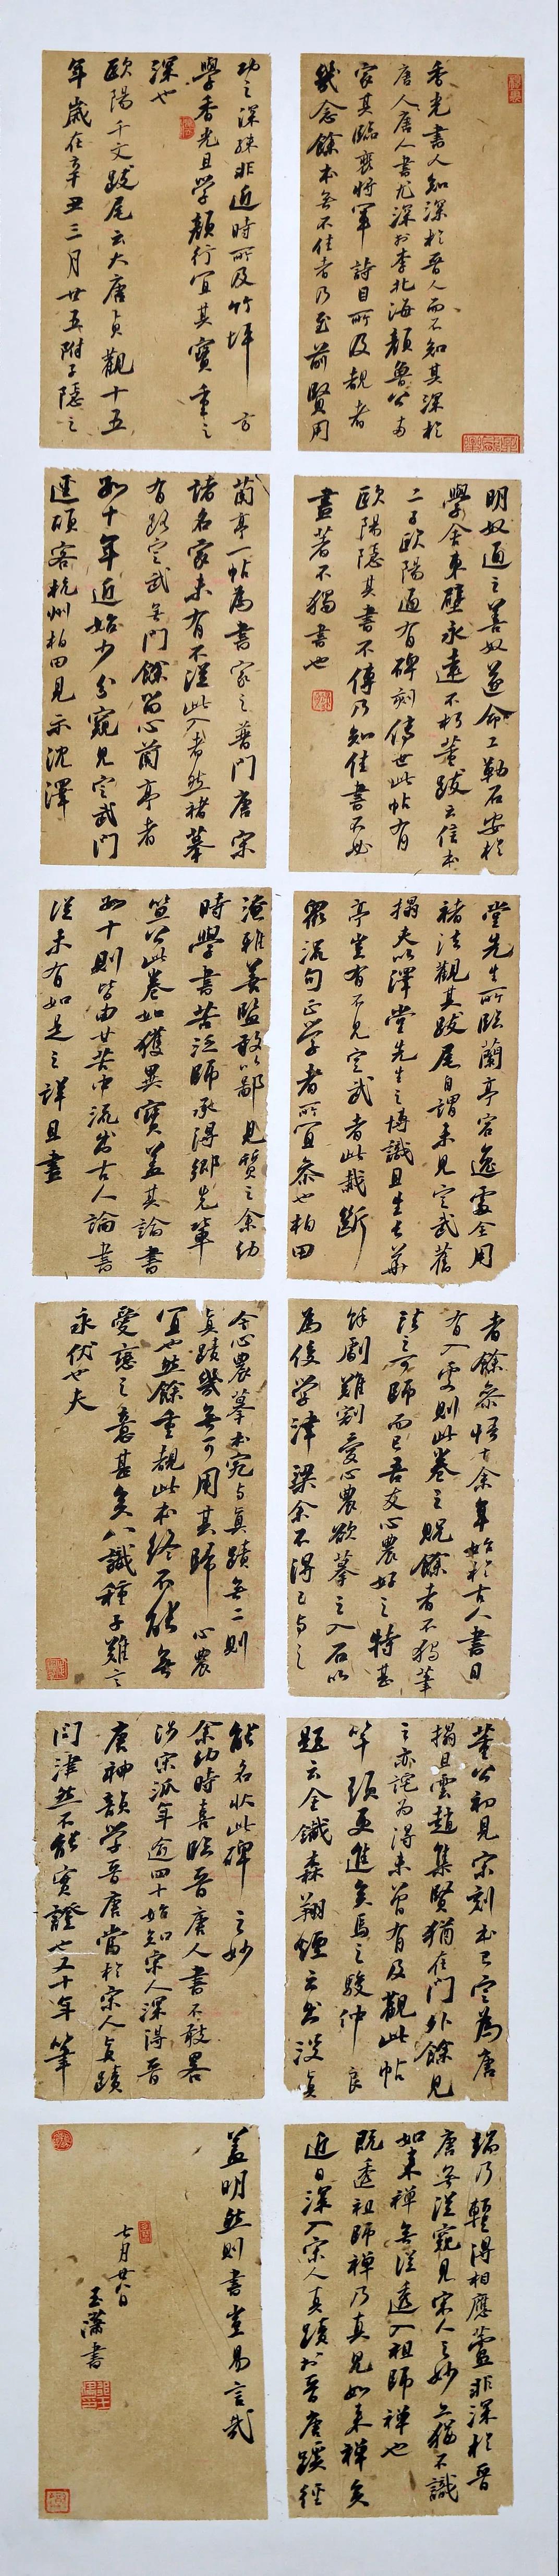 香光書人知深於晉人而不知其深於
唐人唐人書尤深於李北海顏魯公兩
家其臨裴將軍詩目所及觀者
幾念餘本無不佳者乃至前賢用
功之深殊非近時所及竹坪方
學香光且學顏行宜其寶重之
深也
歐陽千文跋尾云大唐貞觀十五
年歲在辛丑三月廿五附子隱之
明奴通之善奴遂命工勒石安於
學舍東壁永遠不朽董跋云信本
二子歐陽通有碑刻傳世此帖有
歐陽隱其書不傳乃知佳書不必
盡著不獨書也
蘭亭一帖為書家之普門唐宋
諸名家未有不從此入者然褚摹
有路定武無門餘留心蘭亭者
如十年近始少分窺見定武門
逕頃客杭州柏田見示沈澤
堂先生所臨蘭亭容逸處全用
褚法觀其跋尾自謂未見定武舊
搨夫以澤堂先生之博識且生長華
亭豈有不見定武者此截斷
眾流句正學者所宜參也柏田
淹雅善鑒敢以鄙見質之余幼
時學書苦泛師承得鄉先輩
笪公此卷如獲異寶蓋其論書
如十則皆由甘苦中流出古人論書
從未有如是之詳且盡
者餘參悟十余年始於古人書目
有入處則此卷之貺餘者不獨筆
法之可師而已吾友心農好之特甚
餘劇難割愛心農欲摹之入石以
為後學津梁余不得已與之
今心農摹本宛與真蹟無二則
真蹟幾無可用其歸心農
宜也然餘重觀此本終不能無
愛戀之意甚矣八識種子難言
永伏也夫
董公初見宋刻本已定為唐
搨且雲趙集賢猶在門外餘見
之亦詫為得未曾有及觀此帖
竿頭更進矣焉之駿仲良
題云全鐵森翔煙云出沒真
能名狀此碑之妙
余幼時喜臨晉唐人書不敢畧
涉宋派年逾四十始知宋人深得晉
唐神韻學晉唐當於宋人真蹟
問津然不能實證也又十年筆
端乃輕得相應蓋非深於晉
唐無從窺見宋人之妙亦猶不識
如來禪無從透入祖師禪也
既透祖師禪乃真見如來禪矣
近日深入宋人真蹟於晉唐蹊徑
蓋明然則書豈易言哉
七月廿八日
玉瀟書